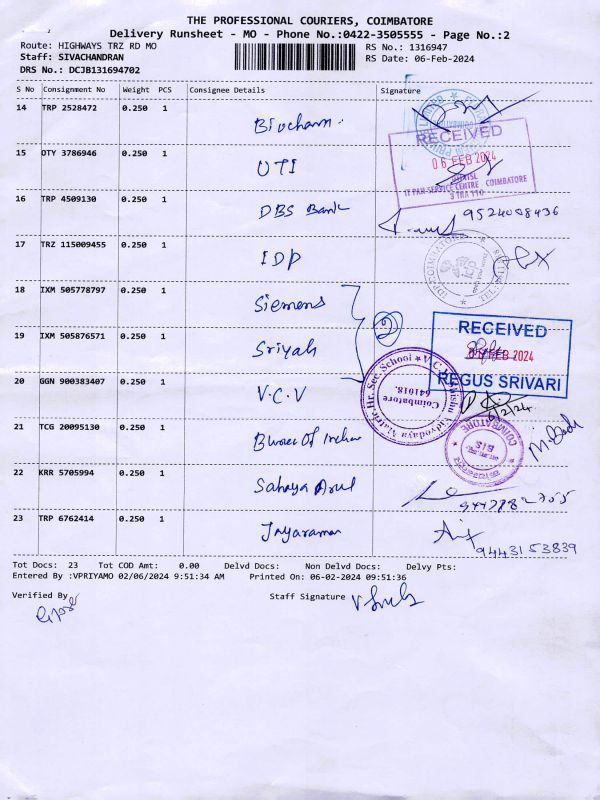 THE PROFESSIONAL COURIERS, COIMBATORE
Delivery Runsheet - MO - Phone No.:0422-3505555 - Page No.:2
Route: HIGHWAYS TRZ RD MO
RS No.: 1316947
Staff: SIVACHANDRAN
RS Date: 06-Feb-2024
DRS No.: DCJB131694702
S No Consignment No Weight PCS Consignee Details Signature
14 TRP 2528472 0.250 1
Biocharm
RECEIVED
06 FEB 2024
15 OTY 3786946 0.250 1
UTI
IT PAN SERVICE CENTRE COIMBATORE
16 TRP 4509130 0.250 1
DBS Bank
9524008436
17 TRZ 115009455 0.250 1
IDP
18 IXM 505778797 0.250 1
Siemens
2
RECEIVED
19 IXM 505876571 0.250 1
Sriyah
FEB 2024
REGUS SRIVARI
20 GGN 900383407 0.250 1
V.C.V
Vidyodaya Matric Hr. Sec. School
Coimbatore
641018.
21 TCG 20095130 0.250 1
Bureo Of Indian
COIMBATORE
BIS
22 KRR 5705994 0.250 1
Sahaya Arul
23 TRP 6762414 0.250 1
Jayaraman
9443153839
Tot Docs: 23 Tot COD Amt: 0.00 Delvd Docs: Non Delvd Docs: Delvy Pts:
Entered By :VPRIYAMO 02/06/2024 9:51:34 AM Printed On: 06-02-2024 09:51:36
Verified By
Staff Signature